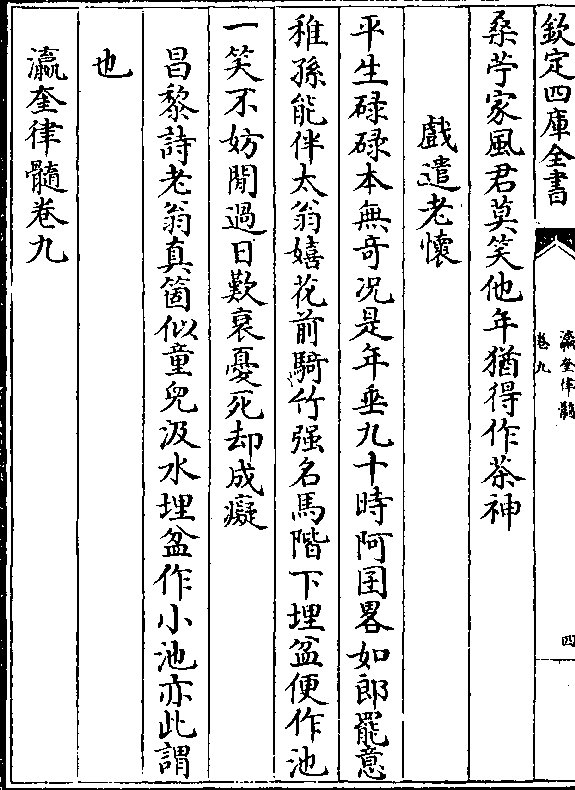 欽定四庫全書
瀛奎律髓
卷九
四
桑苧家風君莫笑他年猶得作茶神
戲遣老懷
平生碌碌本無奇况是年垂九十時阿囝畧如郎罷意
稚孫能伴太翁嬉花前騎竹强名馬階下埋盆便作池
一笑不妨閒過日歎衰憂死却成癡
昌黎詩老翁真箇似童兒汲水埋盆作小池亦此謂
也
瀛奎律髓卷九